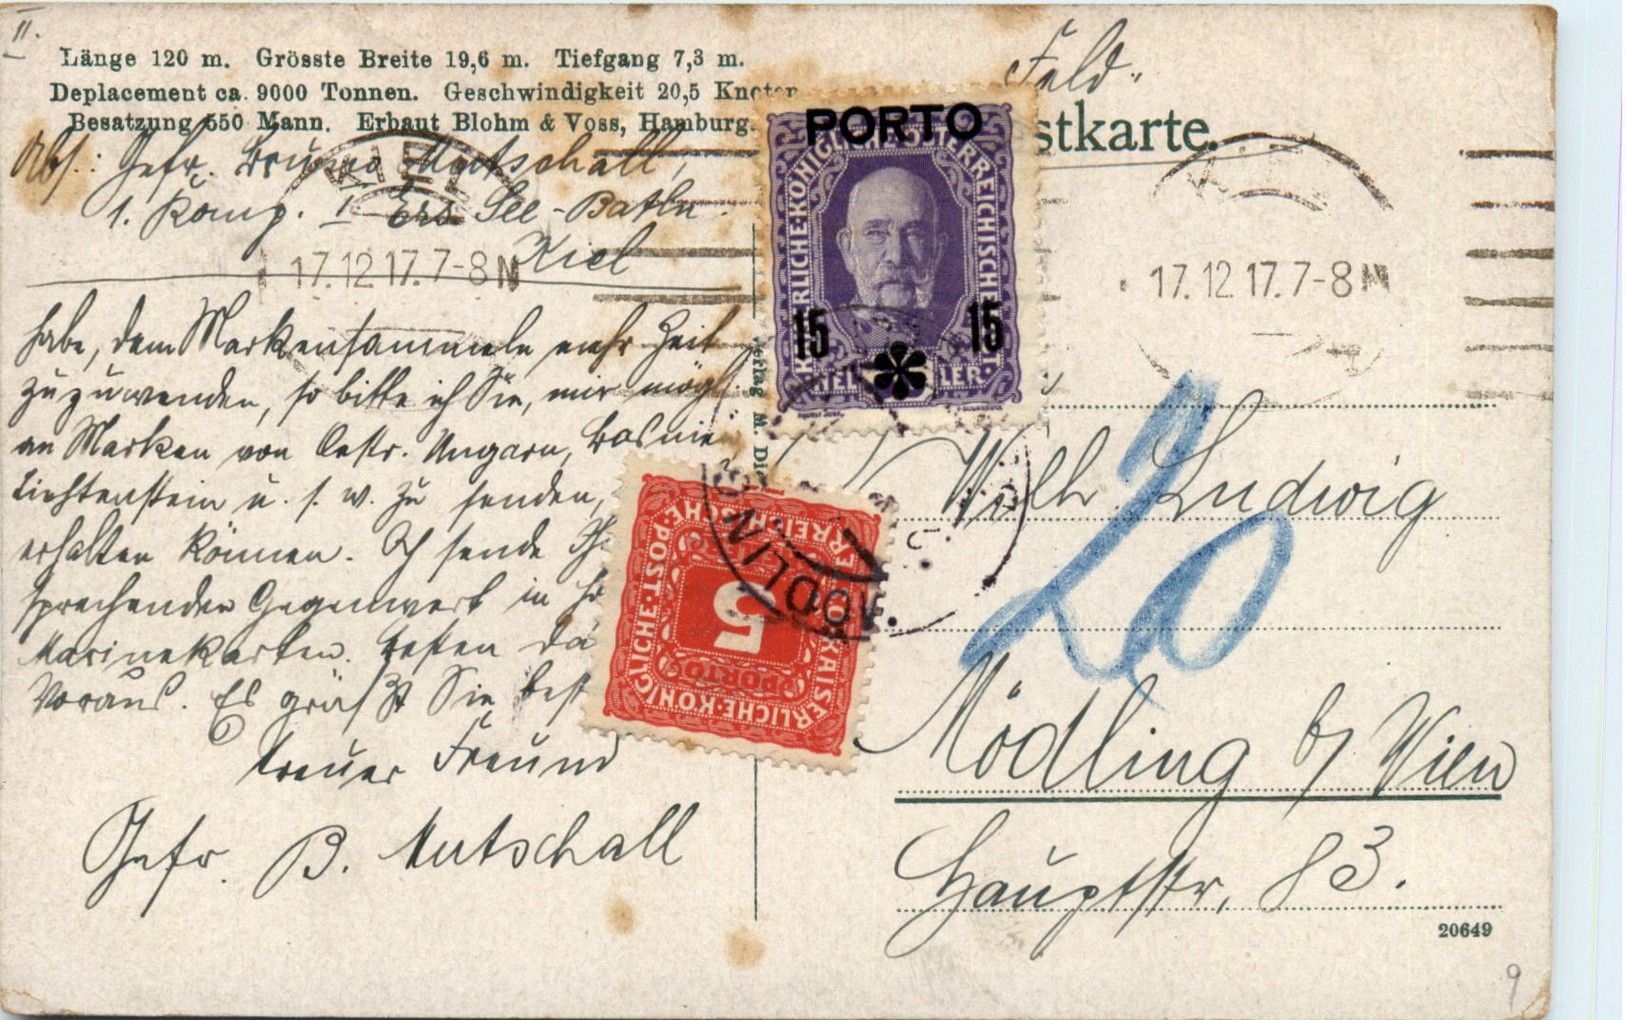 II.
Länge 120 m. Grösste Breite 19,6 m. Tiefgang 7,3 m.
Deplacement ca. 9000 Tonnen. Geschwindigkeit 20,5 Knoten
Besatzung 550 Mann. Erbaut Blohm & Voss, Hamburg.
Feld-
stkarte.
Abs.: Gefr. Bruno Mutschall,
1. Komp. I Ers See-Batln.
Kiel
KIEL
17.12.17.7-8N
17.12.17.7-8N
habe, dem Markensammeln mehr Zeit
zuzuwenden, so bitte ich Sie, mir mögl.
an Marken von Oestr. Ungarn, Bosnie
Liechtenstein u. s. w. zu senden,
erhalten können. Ich sende Ih
sprechenden Gegenwert in
Marinekarten. Besten Da
Voraus. Es grüßt Sie best
treuer Freund
Gefr. B. Mutschall
PORTO
KAISERLICHE·KÖNIGLICHE·ÖSTERREICHISCHE
15 15
HELLER
KAISERLICHE·KÖNIGLICHE·ÖSTERREICHISCHE·POST·
5
PORTO
MÖDLING
erlag M. Die
20
Wilh. Ludwig
Mödling b/ Wien
Hauptstr. 83.
20649
9